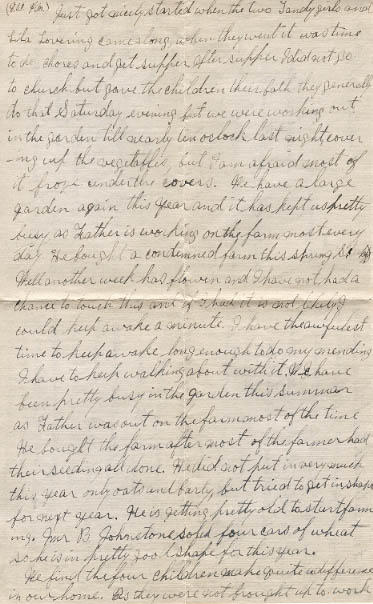 (9.20 P.M.) Just got nicely started when the two Tandy girls and
Lila Lovering came along, when they went it was time
to do chores and get supper, after supper I did not go
to church but gave the children their bath they generally
do that Saturday evening but we were working out
in the garden till nearly ten oclock last night cover
-ing up the vegetables, but I am afraid most of
it froze under the covers. We have a large
garden again this year and it has kept us pretty
busy as Father is working on the farm most every
day. He bought a condemned farm this spring
Well another week has flowin and I have not had a
chance to touch this and if I had it is not likely I
could keep awake a minute. I have the awfulest
time to keep awake long enough to do my mending
I have to keep walking about with it. We have
been pretty busy in the garden this summer
as Father was out on the farm most of the time
He bought the farm after most of the farmer had
their seeding all done. He did not put in very much
this year only oats and barly, but tried to get in shape
for next year. He is getting pretty old to start farm
ing. Mr B Johnstone sold four cars of wheat
so he is in pretty good shape for this year.
We find the four children make quite a difference
in our home. As they were not brought up to work